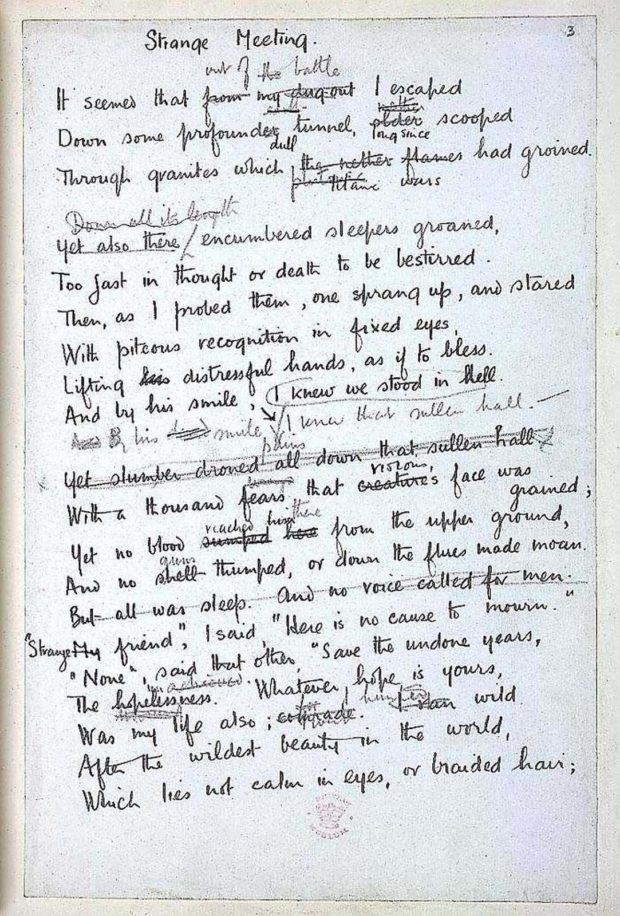 3
Strange Meeting.
out of the battle
It seemed that from my dugout I escaped
Down some profounder tunnel, older scooped
dull long since
Through granites which the nether flames had groined.
Titanic wars
Down all its length
Yet also there encumbered sleepers groaned,
Too fast in thought or death to be bestirred.
Then, as I probed them, one sprang up, and stared
With piteous recognition in fixed eyes,
Lifting his distressful hands, as if to bless.
And by his smile, I knew we stood in Hell.
And By his dead smile I knew that sullen hall. —
pains
Yet slumber droned all down that sullen hall
With a thousand fears that creature's face was
visions
grained;
reached him there
Yet no blood sumped here from the upper ground,
guns
And no shell thumped, or down the flues made moan.
But all was sleep. And no voice called for men.
"Strange My friend", I said, "Here is no cause to mourn."
"None", said that other, "Save the undone years,
The hopelessness. Whatever hope is yours,
Was my life also; comrade. I ran wild
After the wildest beauty in the world,
Which lies not calm in eyes, or braided hair;